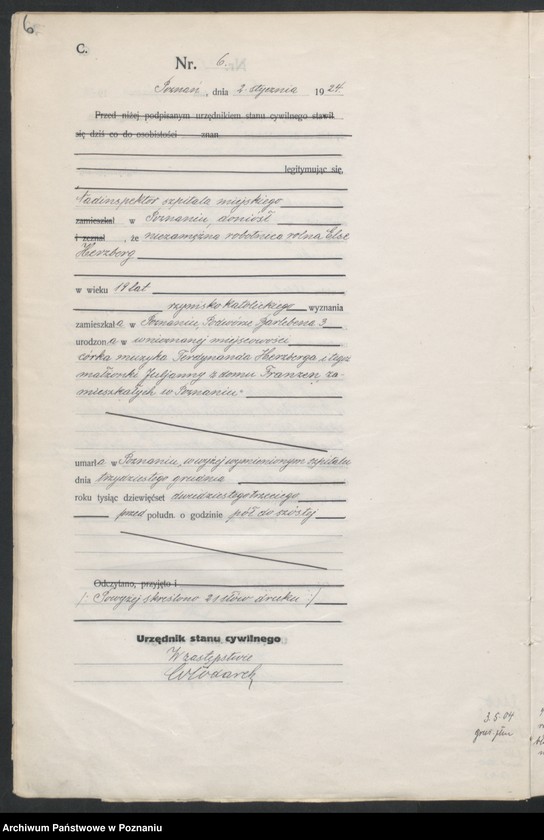 6.
C.
Nr. 6.
Poznań, dnia 2. stycznia 1924.
Przed niżej podpisanym urzędnikiem stanu cywilnego stawił
się dziś co do osobistości znan
legitymując się,
Nadinspektor szpitala miejskiego
zamieszkał w Poznaniu, doniósł
i zeznał, że niezamężna robotnica rolna Else
Herzberg
w wieku 19 lat
rzymsko katolickiego wyznania
zamieszkała w Poznaniu, Podwórze Garbebena 3
urodzona w miejscowości
córka muzyka Ferdynanda Herzberga i tegoż
małżonki Juljanny z domu Franzen, za-
mieszkałych w Poznaniu
umarła w Poznaniu, w wyżej wymienionym szpitalu
dnia trzydziestego grudnia
roku tysiąc dziewięćset dwudziestego trzeciego
przed połudn. o godzinie pół do szóstej
Odczytano, przyjęto i
/: Powyżej skreślono 21 słów druku :/
Urzędnik stanu cywilnego
W zastępstwie
Włodarek
3.5.04
Archiwum Państwowe w Poznaniu